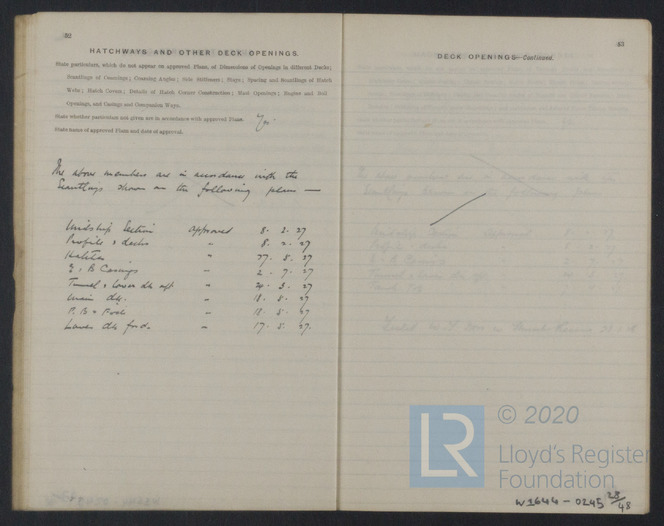 52
HATCHWAYS AND OTHER DECK OPENINGS.
State particulars, which do not appear on approved Plans, of Dimensions of Openings in different Decks;
Scantlings of Coamings; Coaming Angles; Side Stiffeners; Stays; Spacing and Scantlings of Hatch
Webs; Hatch Covers; Details of Hatch Corner Construction; Mast Openings; Engine and Boiler
Openings, and Casings and Companion Ways.
State whether particulars not given are in accordance with approved Plans. Yes
State name of approved Plans and date of approval.
The above members are in accordance with the
Scantlings shown on the following plans —
Midship Section approved 8. 2. 27
Profile & decks " 8. 2. 27
Hatches " 27. 5. 27
E & B Casings " 2. 7. 27
Tunnel & lower dk aft " 24. 3. 27
Main dk. " 18. 5. 27
P. B & Focle " 18. 5. 27
Lower dk ford. " 17. 5. 27.
53
DECK OPENINGS—Continued.
LR
© 2020
Lloyd's Register
Foundation
W1644-0245 28/48